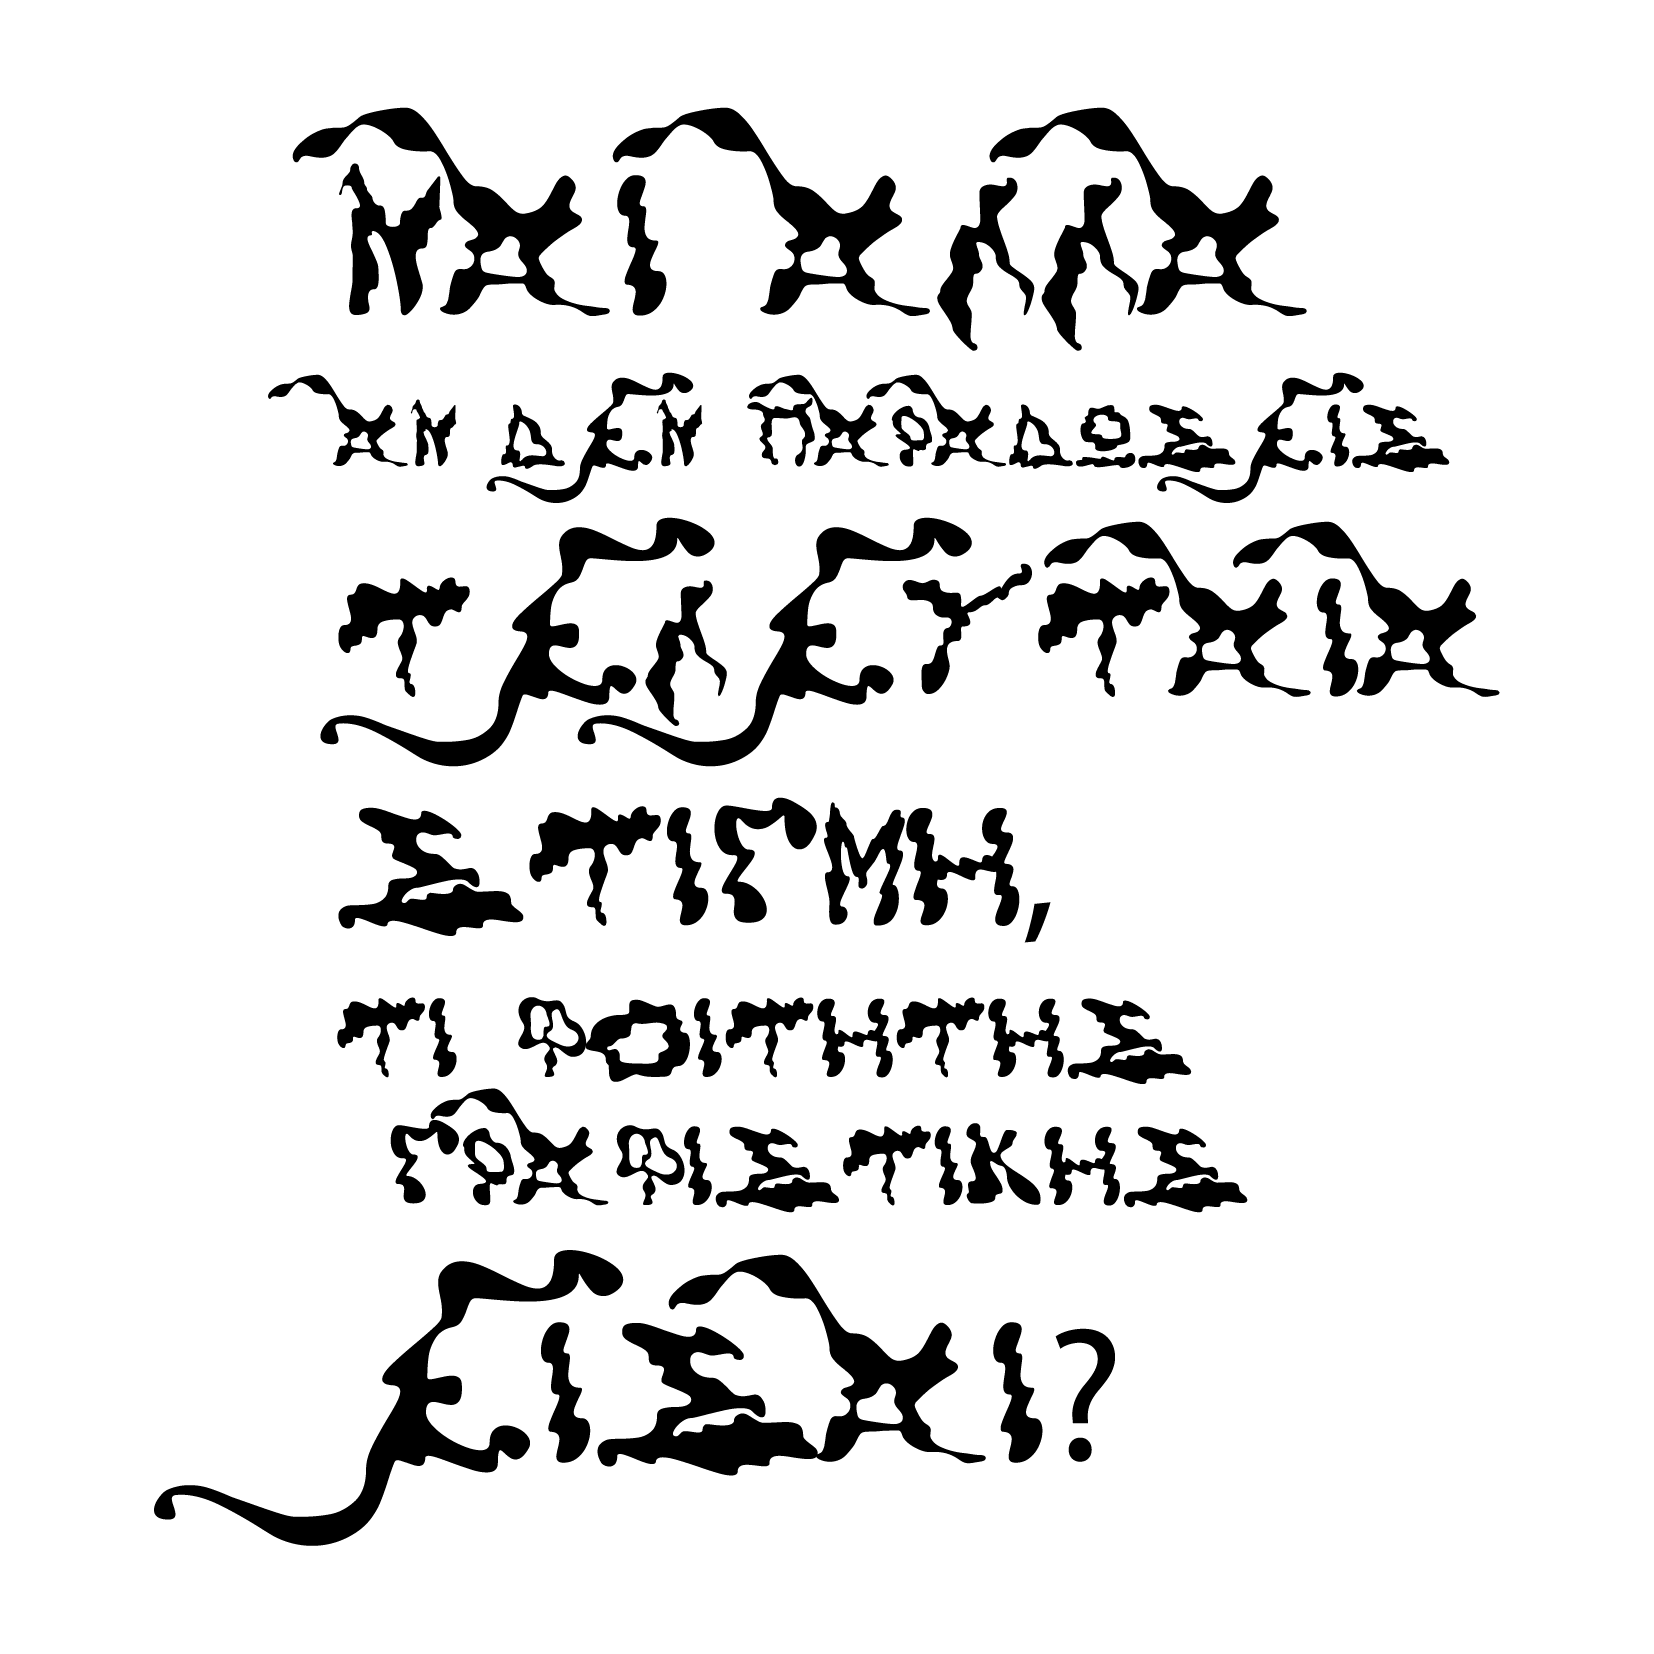 ΝΑΙ ΑΛΛΑ
ΑΝ ΔΕΝ ΠΑΡΑΔΩΣΕΙΣ
ΤΕΛΕΥΤΑΙΑ
ΣΤΙΓΜΗ,
ΤΙ ΦΟΙΤΗΤΗΣ
ΓΡΑΦΙΣΤΙΚΗΣ
ΕΙΣΑΙ?